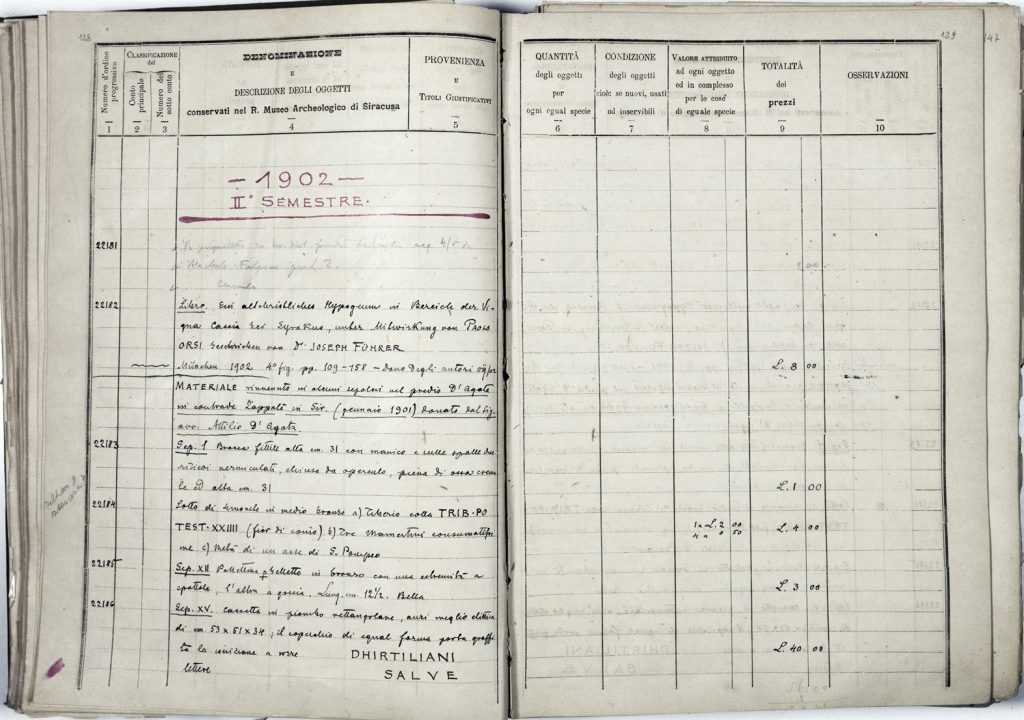 128
Numero d'ordine progressivo
CLASSIFICAZIONE
del
Conto principale
Numero del sotto conto
DENOMINAZIONE
E
DESCRIZIONE DEGLI OGGETTI
conservati nel R. Museo Archeologico di Siracusa
PROVENIENZA
E
TITOLI GIUSTIFICATIVI
1 2 3 4 5
— 1902 —
II° SEMESTRE.
22181
22182 Libro. Ein altchristliches Hypogeum in Bereiche der Vi-
gna Cassia bei Syrakus, unter Mitwirkung von PAOLO
ORSI beschrieben von Dr JOSEPH FÜHRER
München 1902 4° fig. pp. 109-158 - dono degli autori
MATERIALE rinvenuto in alcuni sepolcri nel predio D'Agata
in contrada Zappalà in Sir. (gennaio 1901) donato dal Sig.
avv. Attilio D'Agata.
22183 Sep. I Brocca fittile alta cm. 31 con manico e sulle spalle
vermiculati, chiusa da opercolo, piena di ossa
ed alta cm. 31
22184 Lotto di monete in medio bronzo a) Tiberio colla TRIB·PO
TEST·XXIIII (fior di conio) b) Tre Mamertini
c) Metà di un asse di S. Pompeo
22185 Sep. XII in bronzo con una estremità a
spattola, l'altra a goccia. Lung. cm 12 1/2. Bella
22186 Sep. XV. Cassetta in piombo rettangolare, anzi meglio elittica
di cm. 53 x 51 x 34; il coperchio di egual forma porta graffi-
ta la iscrizione a
lettere
DHIRTILIANI
SALVE
129
147
QUANTITÀ
degli oggetti
per
ogni egual specie
CONDIZIONE
degli oggetti
cioè: se nuovi, usati
od inservibili
VALORE ATTRIBUITO
ad ogni oggetto
ed in complesso
per le cose
di eguale specie
TOTALITÀ
dei
prezzi
OSSERVAZIONI
6 7 8 9 10
L. 8 00
L. 1 00
1a L. 2 00
4 a 0 50
L. 4 00
L. 3 00
L. 40 00